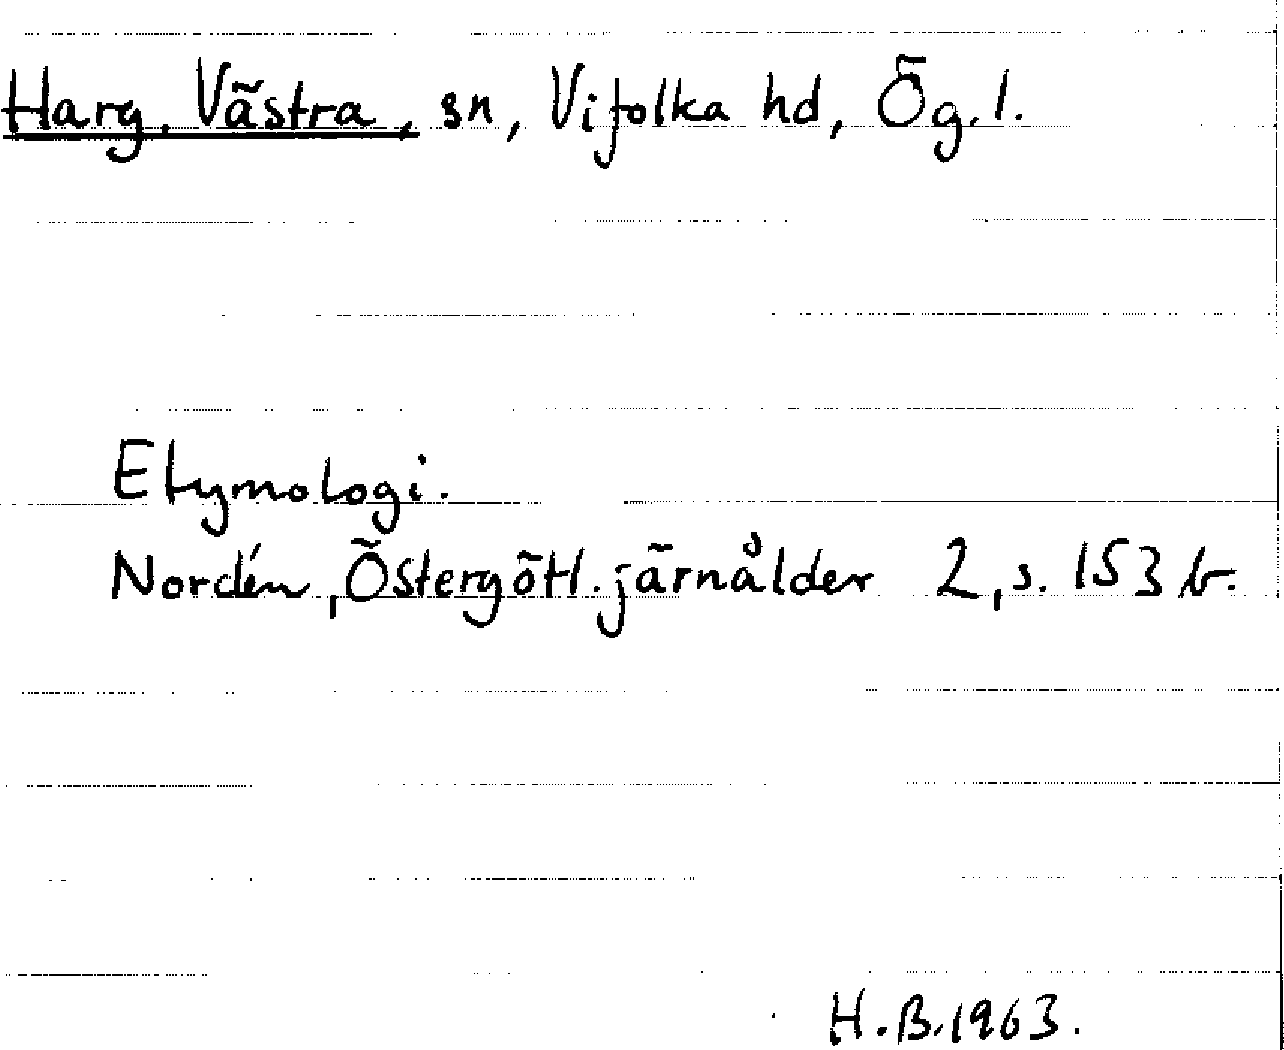 Harg, Västra, sn, Vifolka hd, Ög. l.
Etymologi.
Nordén, Östergötl. järnålder 2, s. 153 b.
H.B. 1963.